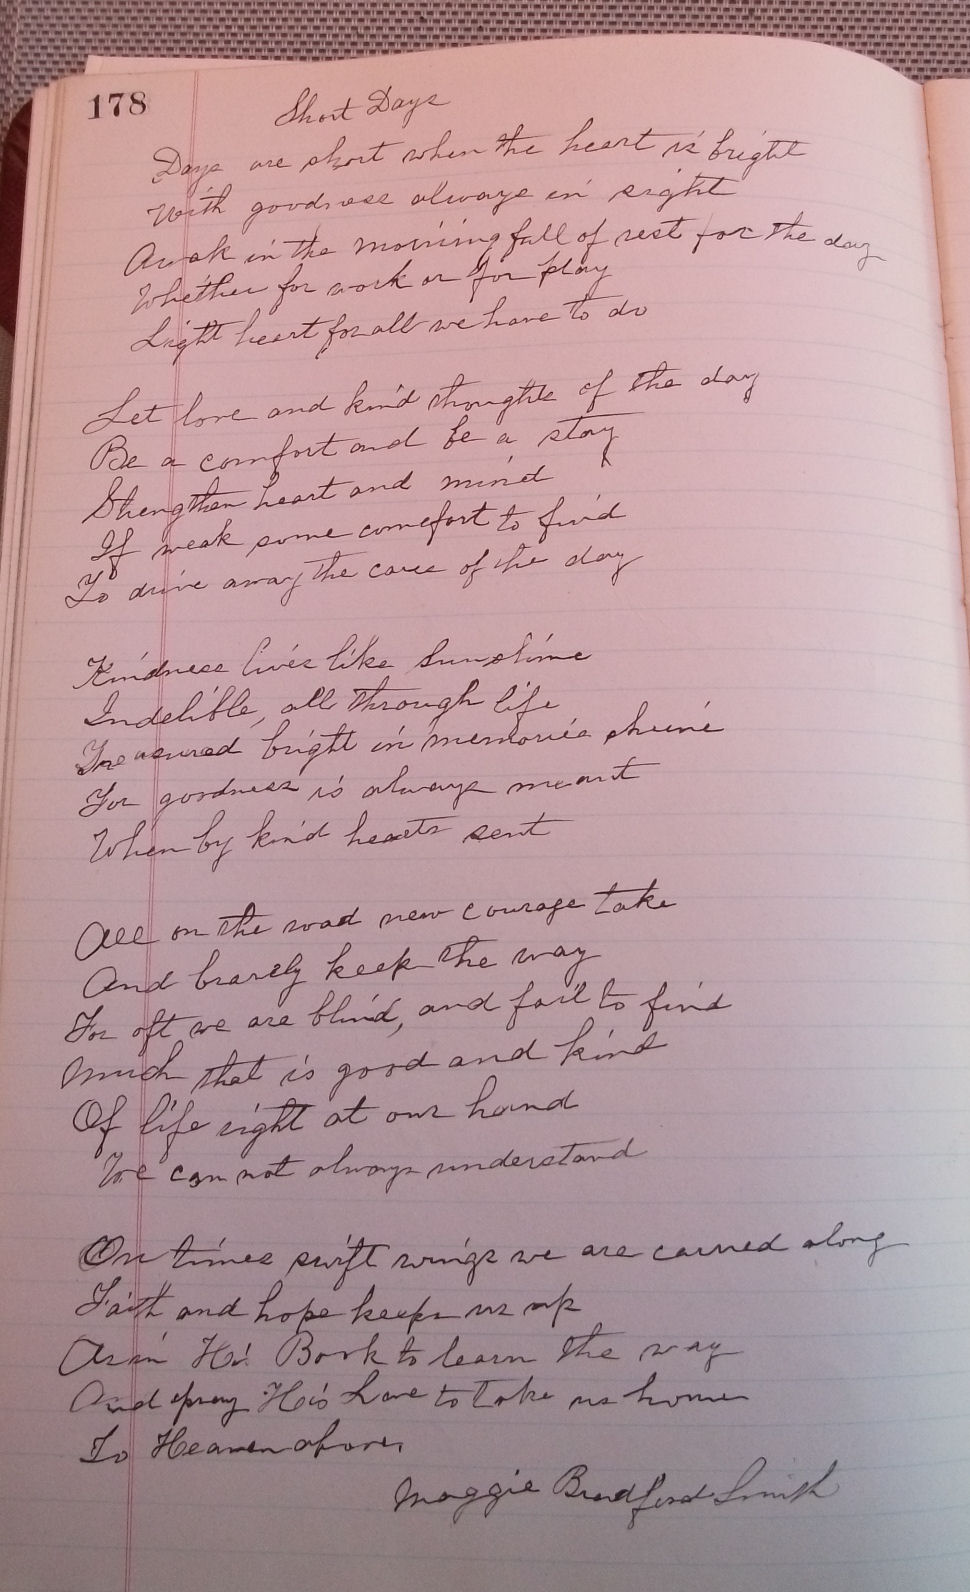 178
Short Days
Days are short when the heart is bright
With goodness always in sight
Awak in the morning full of rest for the day
Whether for work or for play
Light heart for all we have to do
Let love and kind thoughts of the day
Be a comfort and be a stay
Strengthen heart and mind
If weak some comfort to find
To drive away the care of the day
Kindness lives like sunshine
Indelible, all through life
Treasured bright in memories shrine
For goodness is always meant
When by kind hearts sent
All on the road new courage take
And bravely keep the way
For oft we are blind, and fail to find
Much that is good and kind
Of life right at our hand
We can not always understand
On times swift wings we are carried along
Faith and hope keeps us up
As in His Book to learn the way
And pray His Love to take us home
To Heaven above.
Maggie Bradford Smith